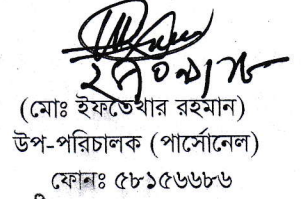 (মোঃ ইফতেখার রহমান)
উপ-পরিচালক (পার্সোনেল)
ফোনঃ ৫৮১৫৬৬৮৬